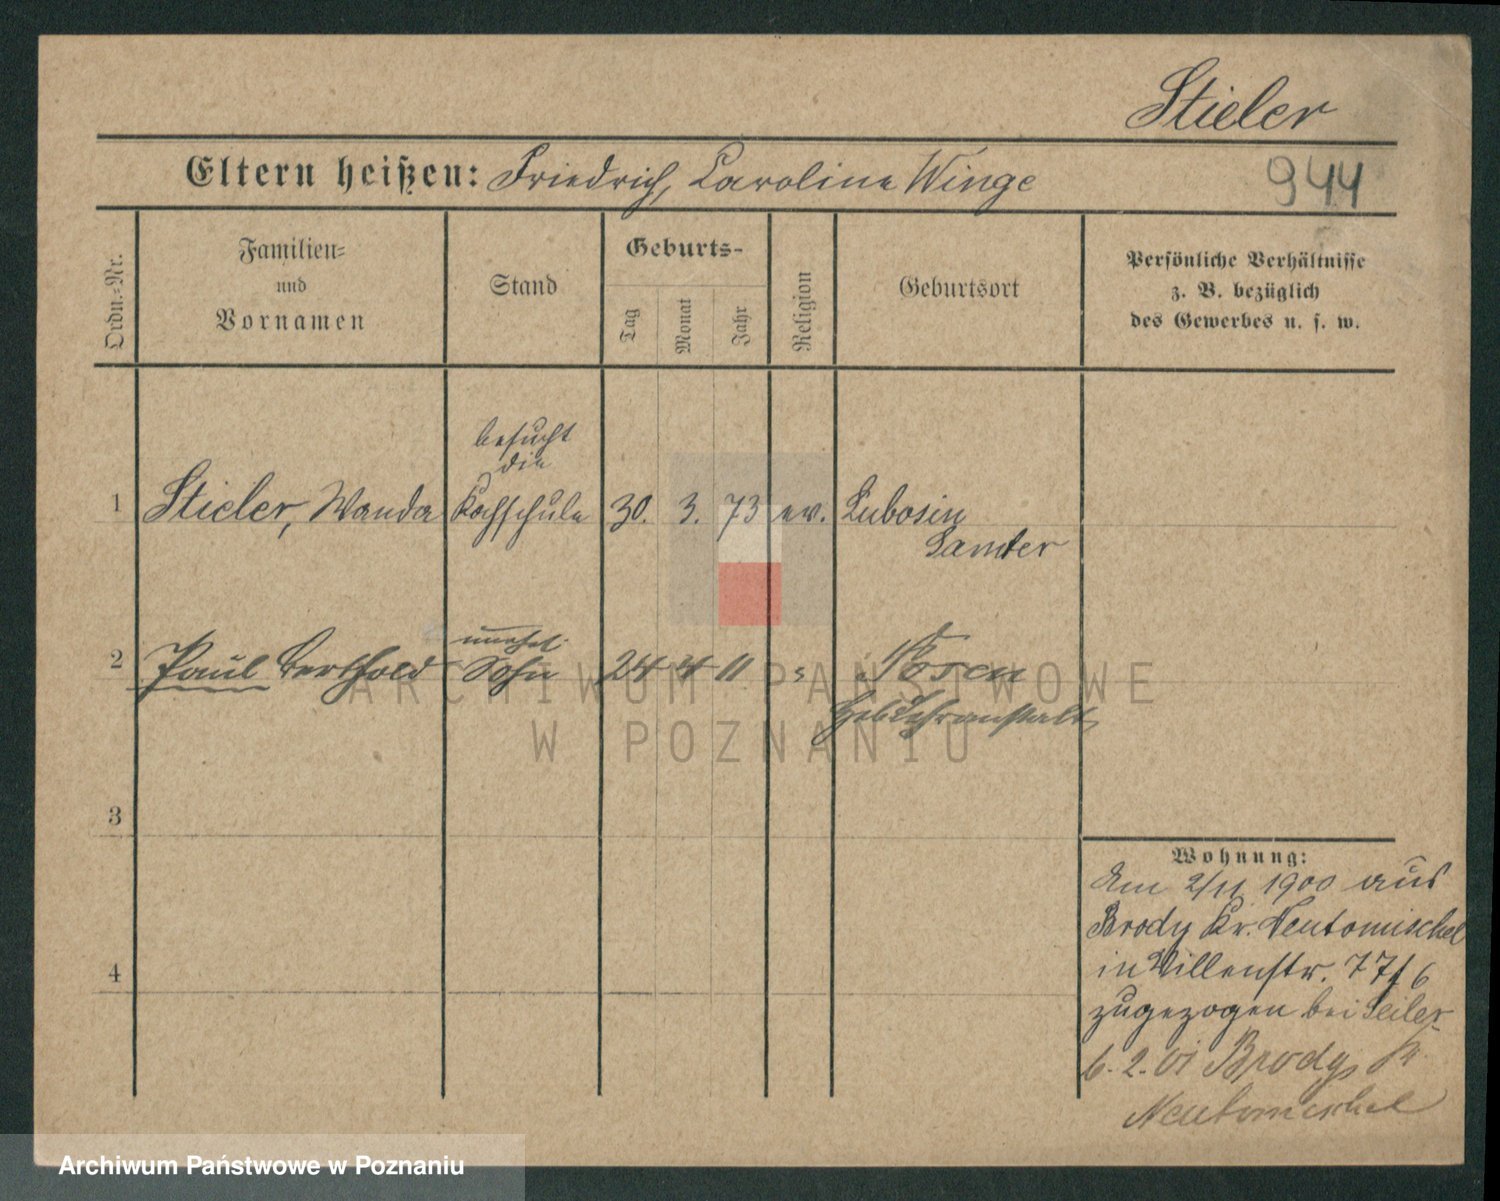 Stieler
Eltern heißen: Friedrich, Caroline Winge
944
Ordn.-Nr.
Familien-
und
Vornamen
Stand
Geburts-
Tag
Monat
Jahr
Religion
Geburtsort
Persönliche Verhältnisse
z. B. bezüglich
des Gewerbes u. s. w.
besucht
die
1 Stieler, Wanda Kochschule 30. 3. 73 ev. Lubosin
Samter
unehel.
2 Paul Berthold Sohn 24 4 11 Posen
Heb Lehranstalt
3
4
Wohnung:
Am 2/11 1900 aus
Brody Kr. Neutomischel
in Villenstr. 7
zugezogen bei Seiler
6. 2. 01 Brody, Kr.
Neutomischel
ARCHIWUM PAŃSTWOWE
W POZNANIU
Archiwum Państwowe w Poznaniu